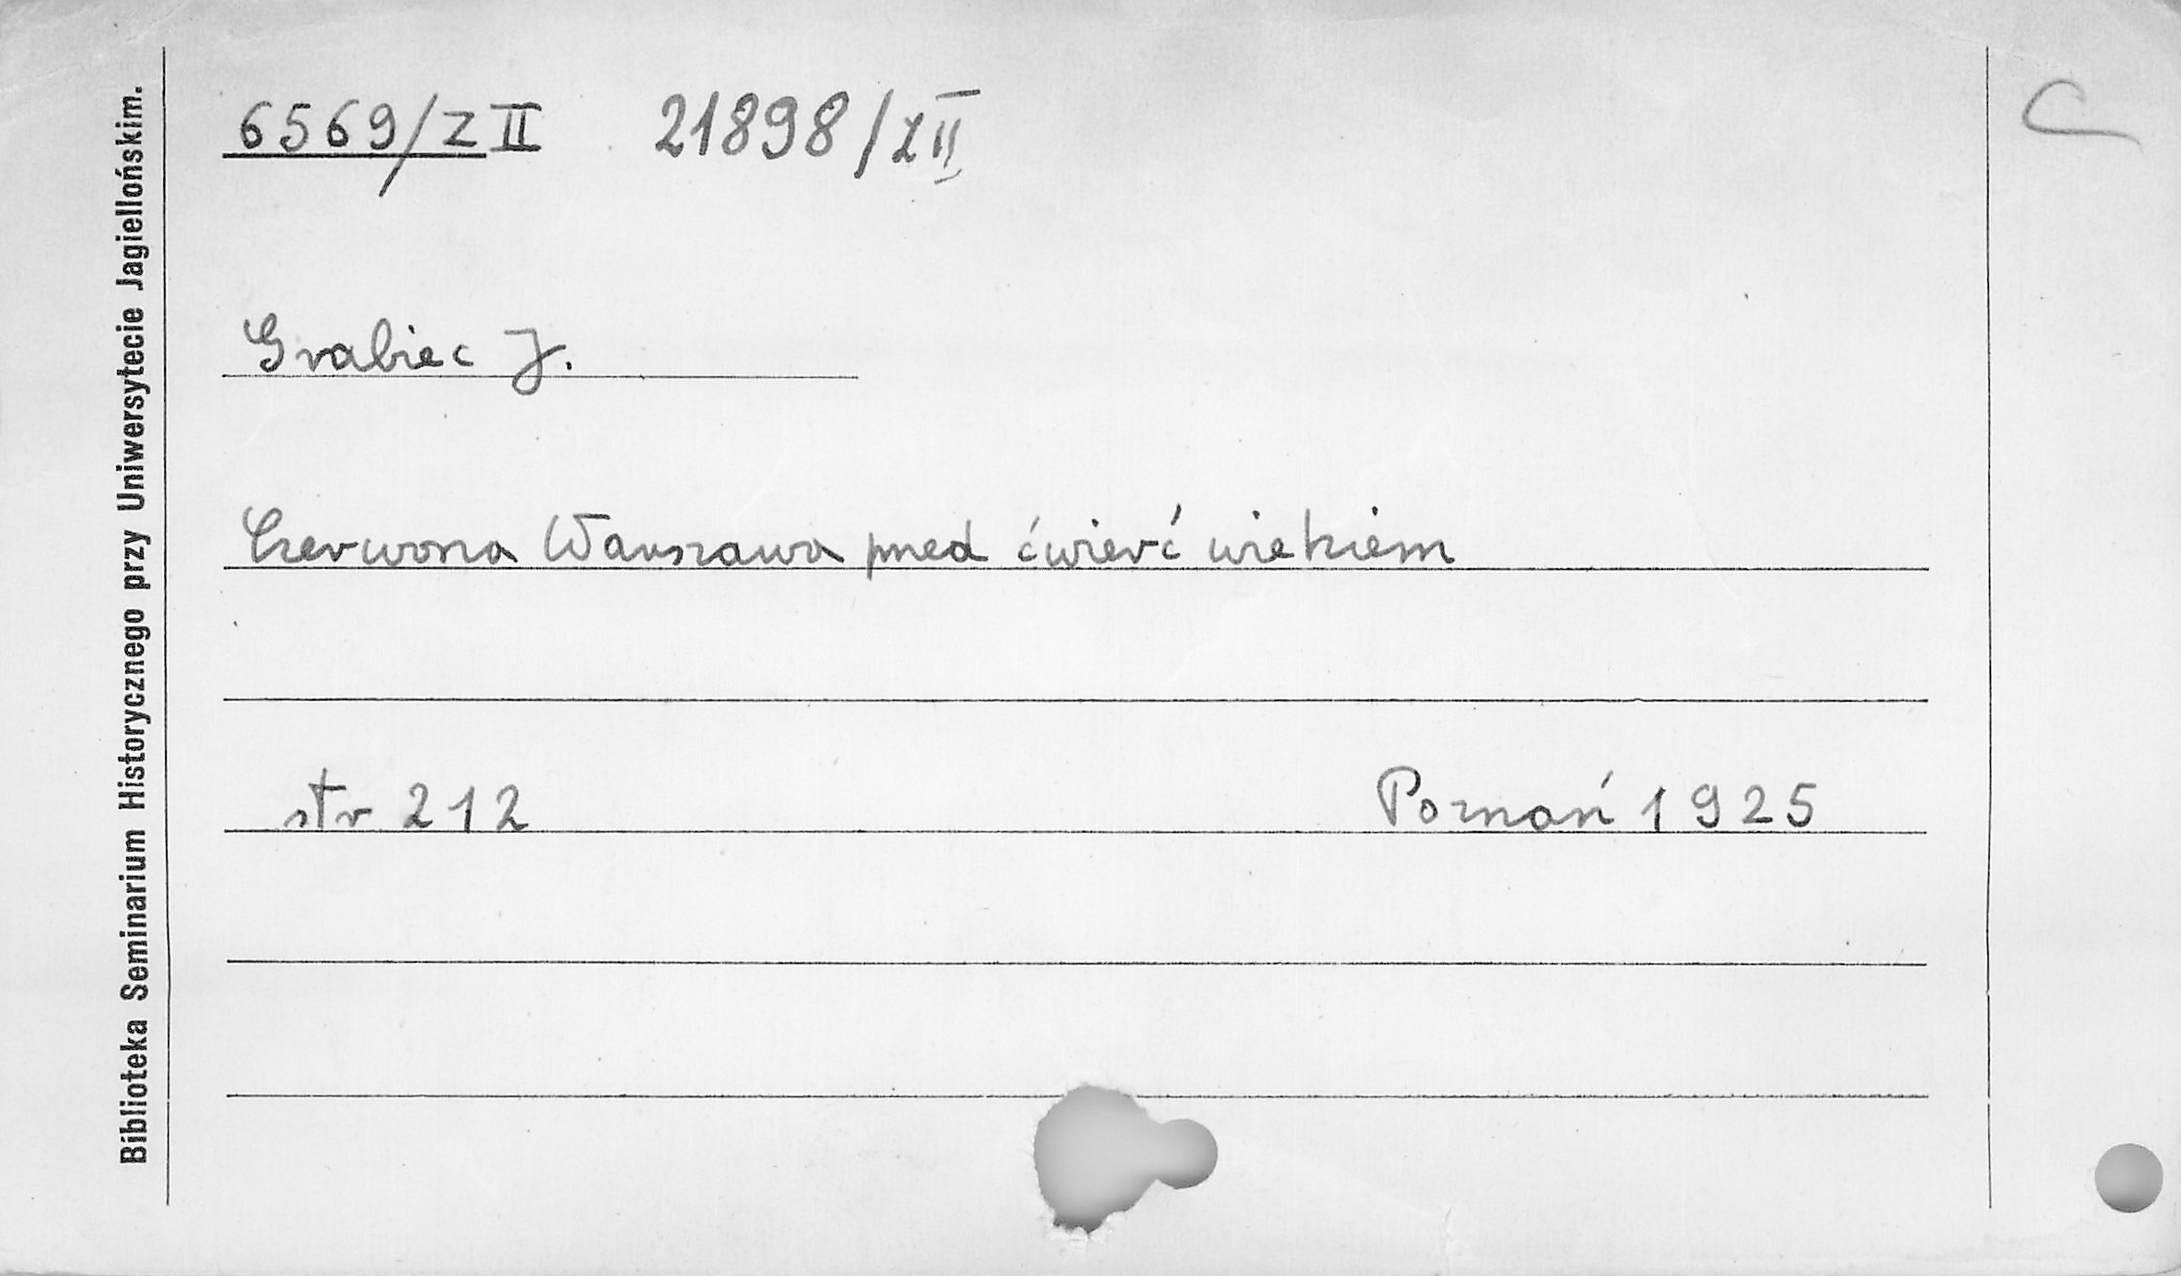 6569/Z II 21898/Z II
C
Grabiec J.
Czerwona Warszawa przed ćwierć wiekiem
str 212 Poznań 1925
Biblioteka Seminarium Historycznego przy Uniwersytecie Jagiellońskim.